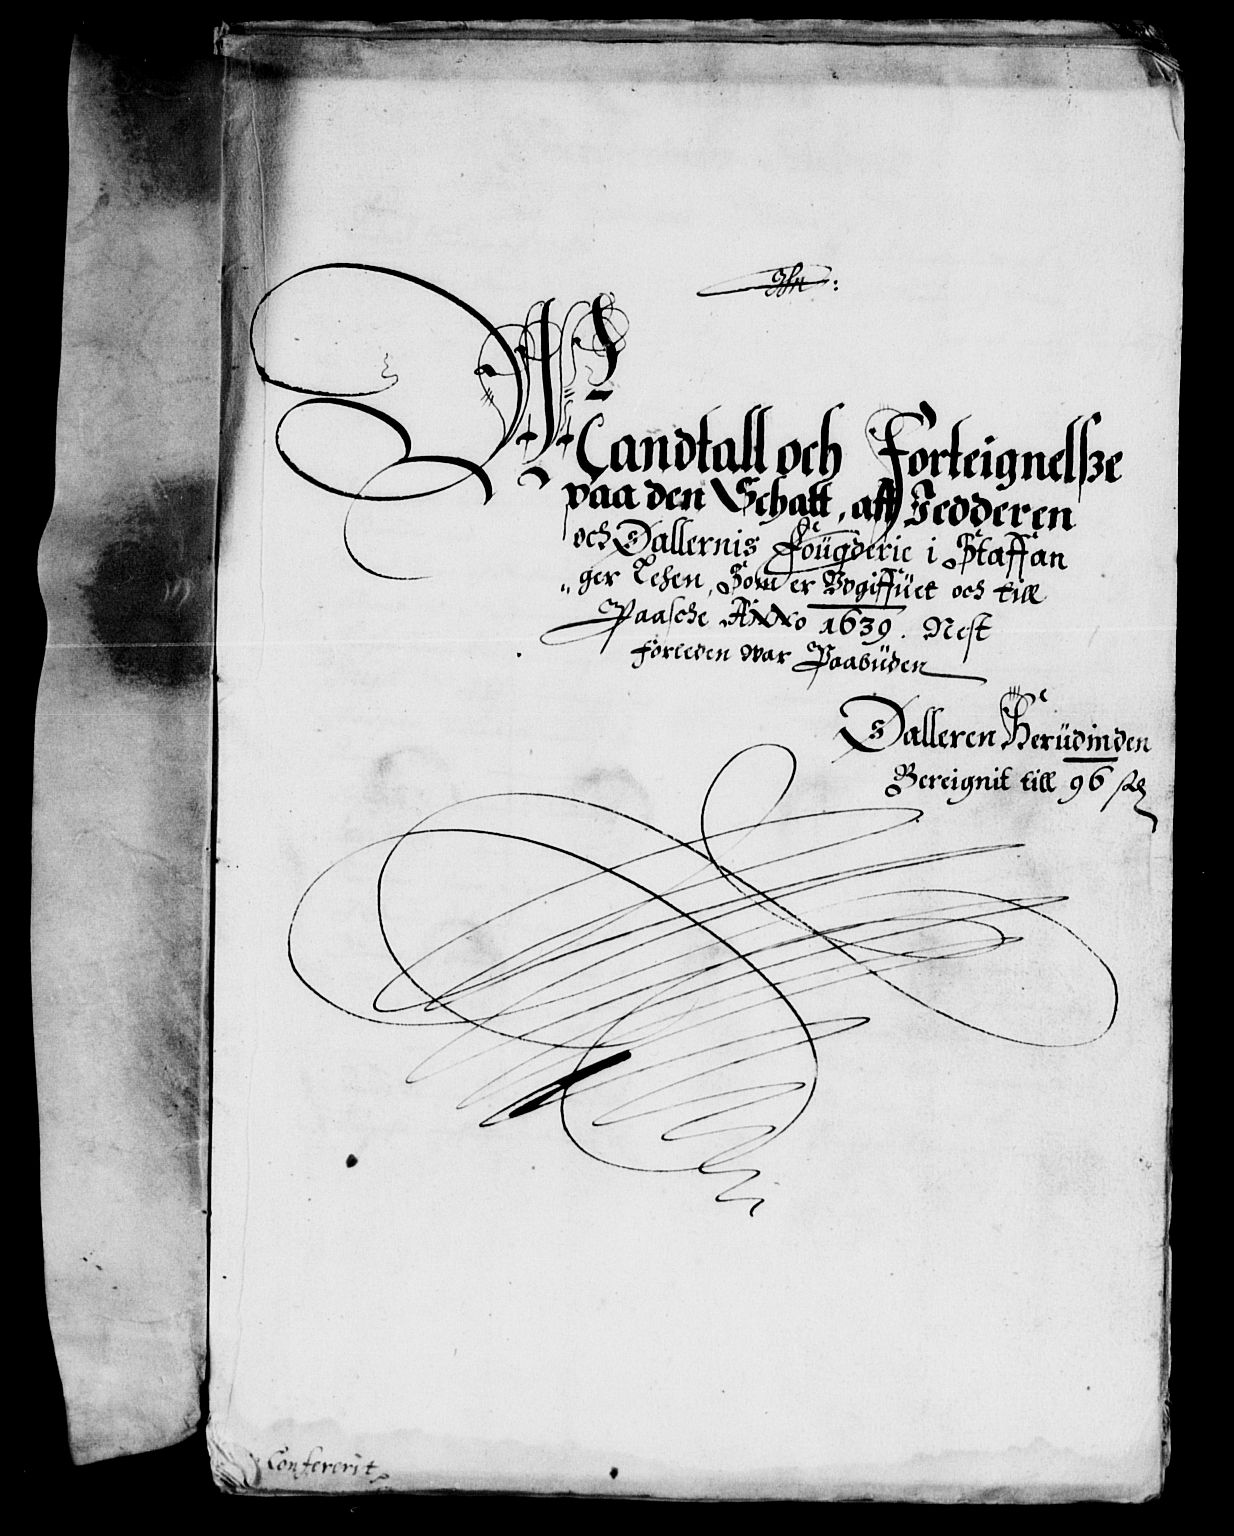 Mandtall och Forteignelsze
paa den Schatt, aff Jedderen
och Dallernis Fougderie i Staffan
"ger Lehen, Som er Vdgiffüet och till
Paasche Anno 1639. Nest
forleden war Paabüden
Dalleren Herüdinden
Bereignit till 96 sz
Confererit